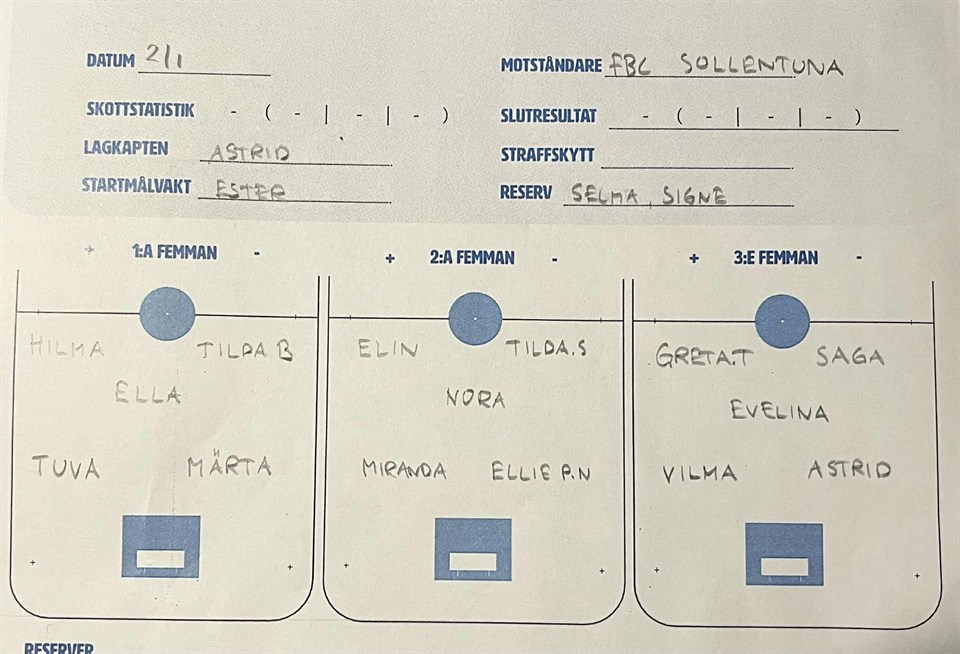 DATUM 2/1 MOTSTÅNDARE FBC SOLLENTUNA
SKOTTSTATISTIK - ( - | - | - ) SLUTRESULTAT - ( - | - | - )
LAGKAPTEN ASTRID STRAFFSKYTT
STARTMÅLVAKT ESTER RESERV SELMA, SIGNE
+ 1:A FEMMAN - + 2:A FEMMAN - + 3:E FEMMAN -
HILMA TILDA B ELIN TILDA.S GRETA.T SAGA
ELLA NORA EVELINA
TUVA MÄRTA MIRANDA ELLIE P.N VILMA ASTRID
RESERVER